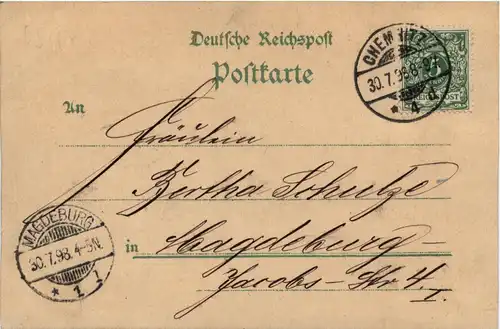 Deutsche Reichspost
Postkarte
CHEMNITZ
30.7.98.8-9V.
* 4 d
An
Fräulein
Bertha Schulze
in Magdeburg-
Jacobs-Str 4.
I.
MAGDEBURG
30.7.98.4-5N.
* 1 l